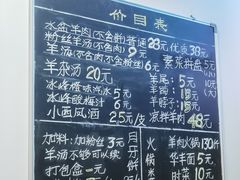 价目表
水盆羊肉(不含饼)普通28元 优良38元
粉丝羊汤(不含肉)9元
羊汤(不含肉不含饼)6元
素菜拼盘5元(小)
10元(大)
羊杂汤20元
羊尾:5元
羊蹄:10元
冰峰橙味汽水5元
羊蛋:15元
冰峰酸梅汁6元
羊脖:15元
小西凤酒2.5元/支
凉拌羊肉48元
加料:加粉丝3元
羊汤不够可以续
打包盒一元
月牙饼
火锅
羊肉火锅130/斤
华丰面5元
时菜10元